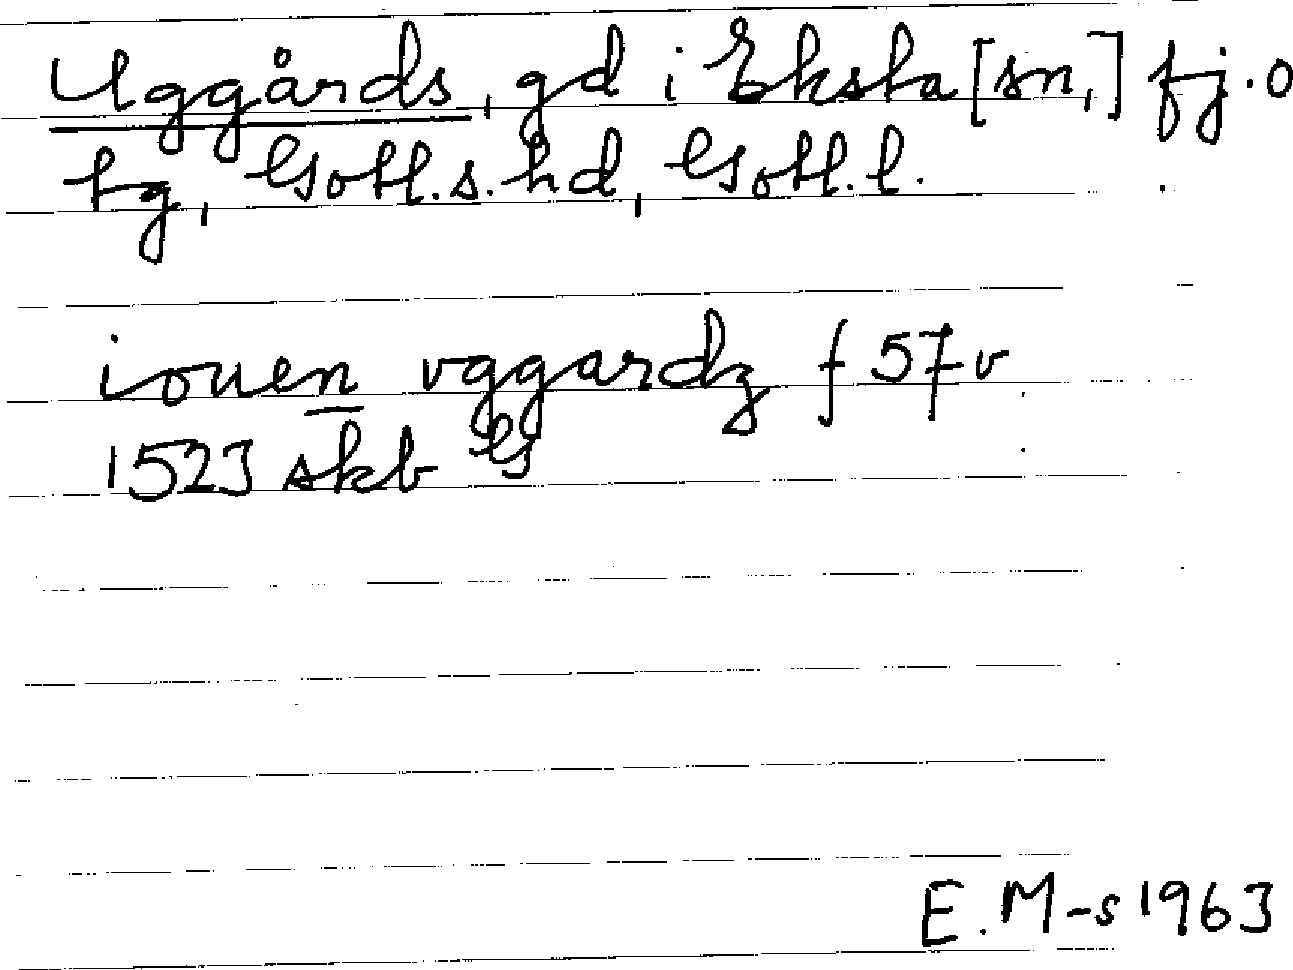 Uggårds, gd i Eksta [sn,] fj. o
tg, Gotl. s. hd, Gotl. l.
iouen vggardz f 57 v
1523 skb G
E. M-s 1963